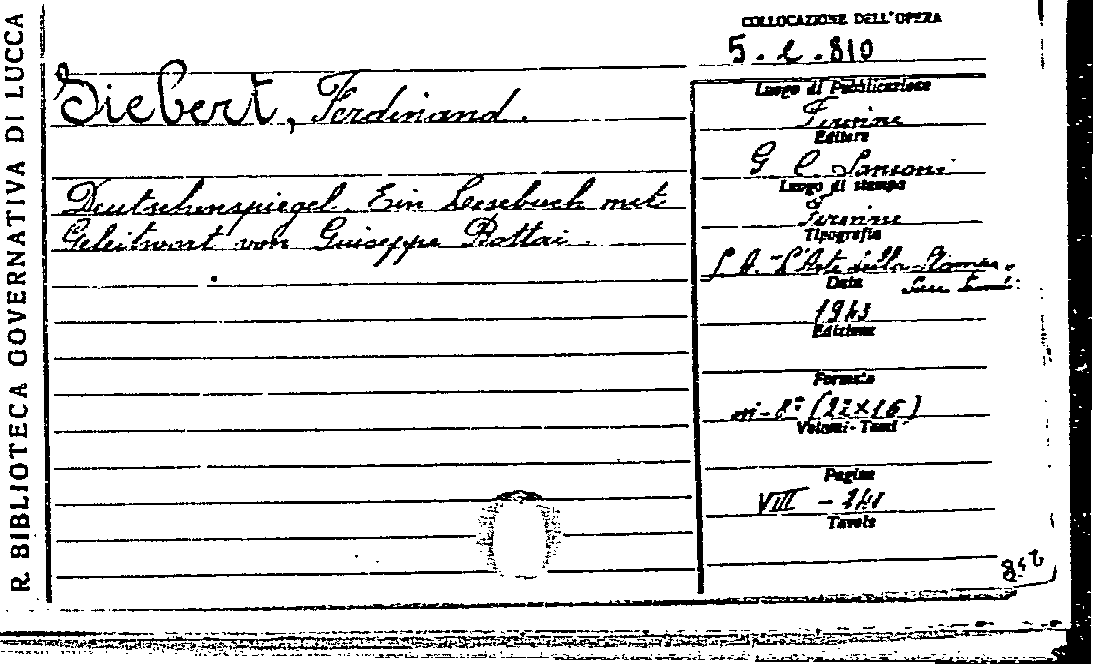 R. BIBLIOTECA GOVERNATIVA DI LUCCA
COLLOCAZIONE DELL'OPERA
5.2.810
Siebert, Ferdinand.
Deutschenspiegel. Ein Lesebuch mit
Geleitwort von Guiseppe Bottai.
Luogo di Pubblicazione
Firenze
Editore
G C. Sansoni
Luogo di stampa
Firenze
Tipografia
S. A. L'Arte della Stampa.
Data
1943
Edizione
Formato
in-8° (22x16)
Volumi-Tomi
Pagine
VIII -
Tavole